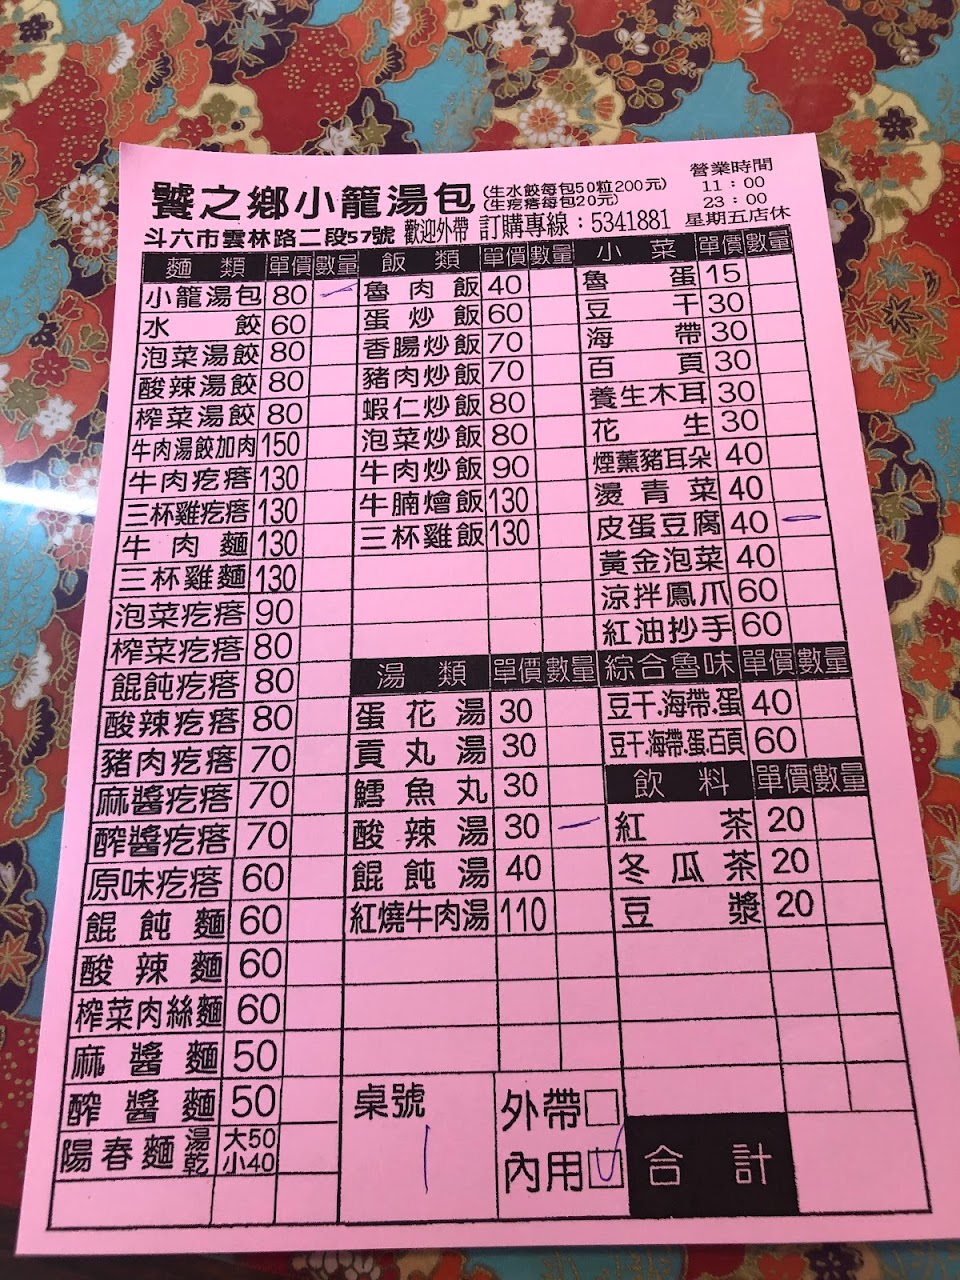 饕之鄉小籠湯包
(生水餃每包50粒200元)
(生疙瘩每包20元)
營業時間
11：00
23：00
星期五店休
斗六市雲林路二段57號 歡迎外帶 訂購專線：5341881
麵類 單價 數量
小籠湯包 80 一
水餃 60
泡菜湯餃 80
酸辣湯餃 80
榨菜湯餃 80
牛肉湯餃加肉 150
牛肉疙瘩 130
三杯雞疙瘩 130
牛肉麵 130
三杯雞麵 130
泡菜疙瘩 90
榨菜疙瘩 80
餛飩疙瘩 80
酸辣疙瘩 80
豬肉疙瘩 70
麻醬疙瘩 70
醡醬疙瘩 70
原味疙瘩 60
餛飩麵 60
酸辣麵 60
榨菜肉絲麵 60
麻醬麵 50
醡醬麵 50
陽春麵 湯乾 大50 小40
飯類 單價 數量
魯肉飯 40
蛋炒飯 60
香腸炒飯 70
豬肉炒飯 70
蝦仁炒飯 80
泡菜炒飯 80
牛肉炒飯 90
牛腩燴飯 130
三杯雞飯 130
湯類 單價 數量
蛋花湯 30
貢丸湯 30
鱈魚丸 30
酸辣湯 30 一
餛飩湯 40
紅燒牛肉湯 110
小菜 單價 數量
魯蛋 15
豆干 30
海帶 30
百頁 30
養生木耳 30
花生 30
煙薰豬耳朵 40
燙青菜 40
皮蛋豆腐 40 一
黃金泡菜 40
涼拌鳳爪 60
紅油抄手 60
綜合魯味 單價 數量
豆干.海帶.蛋 40
豆干.海帶.蛋.百頁 60
飲料 單價 數量
紅茶 20
冬瓜茶 20
豆漿 20
桌號 1
外帶□
內用□
合計